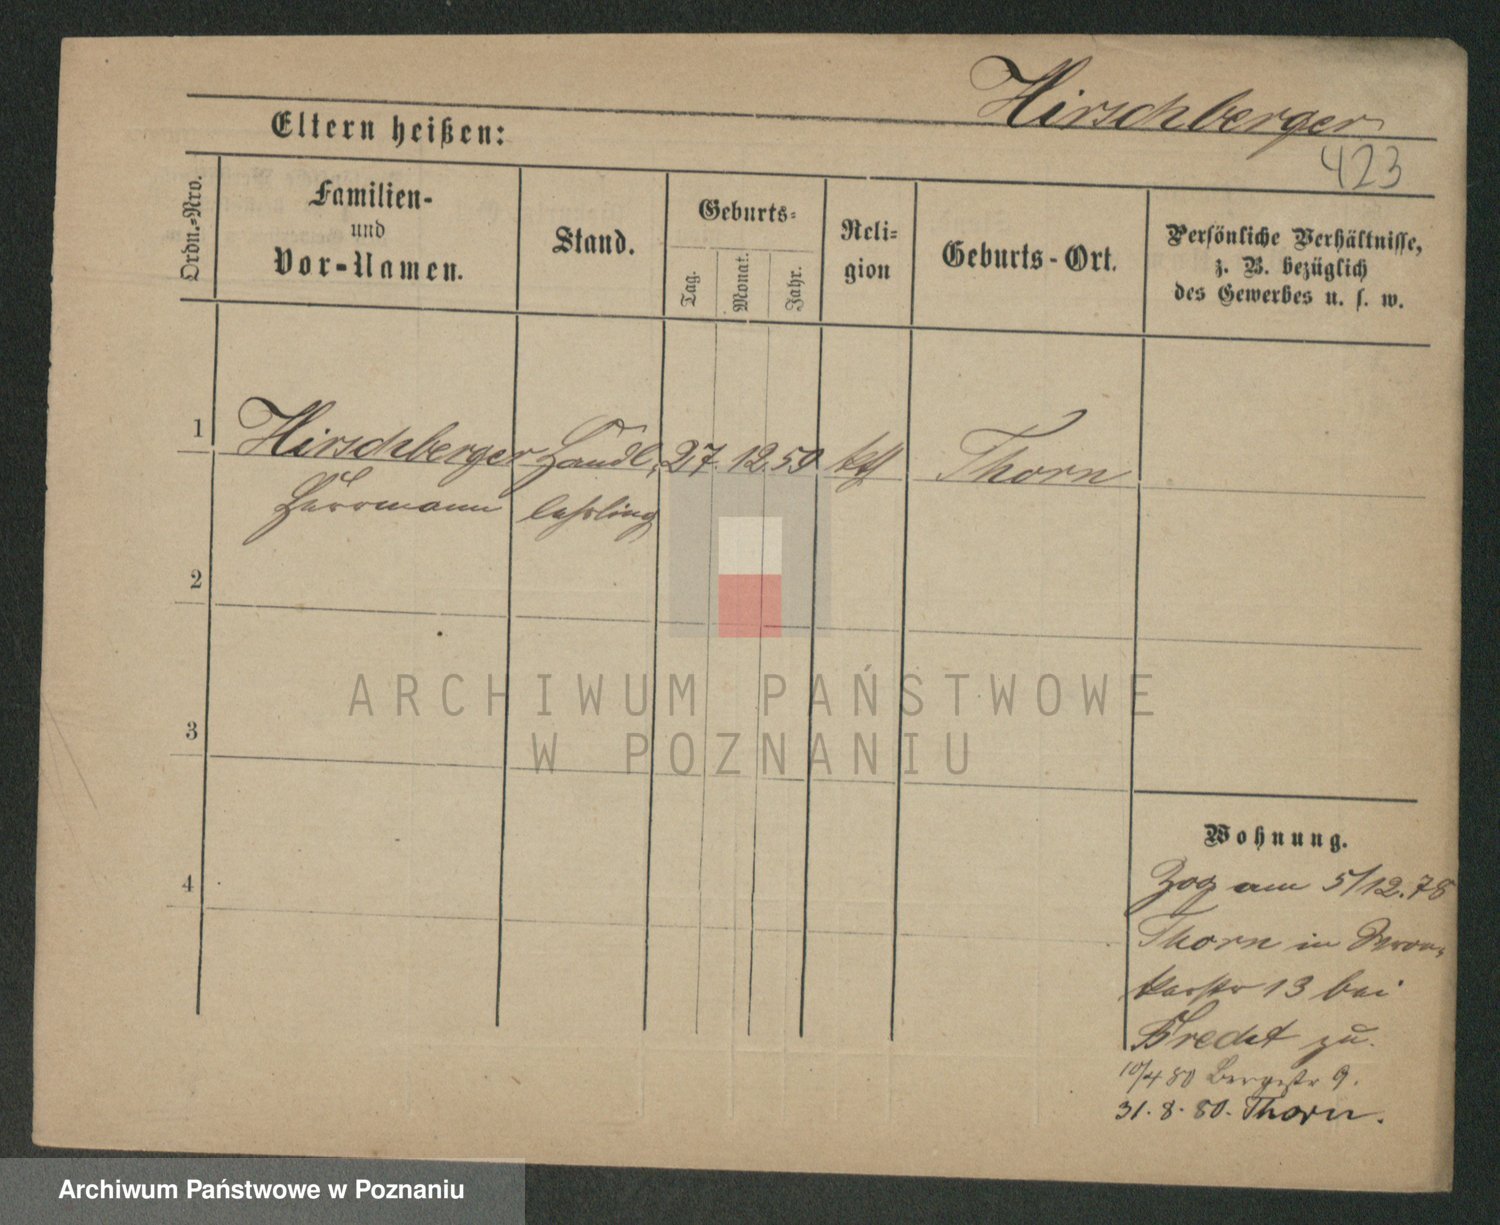 Hirschberger
423
Eltern heißen:
Ordn.-Nro.
Familien-
und
Vor-Namen.
Stand.
Geburts-
Tag.
Monat.
Jahr.
Reli-
gion
Geburts-Ort.
Persönliche Verhältnisse,
z. B. bezüglich
des Gewerbes u. s. w.
1 Hirschberger Handl. 27. 12. 59 Thorn
Herrmann lehrling
2
3
4
Wohnung.
Zog am 5/12.78
Thorn in Wron-
kerstr 13 bei
zu.
10/4 80 Bergstr 9.
31. 8. 80. Thorn.
ARCHIWUM PAŃSTWOWE
W POZNANIU
Archiwum Państwowe w Poznaniu